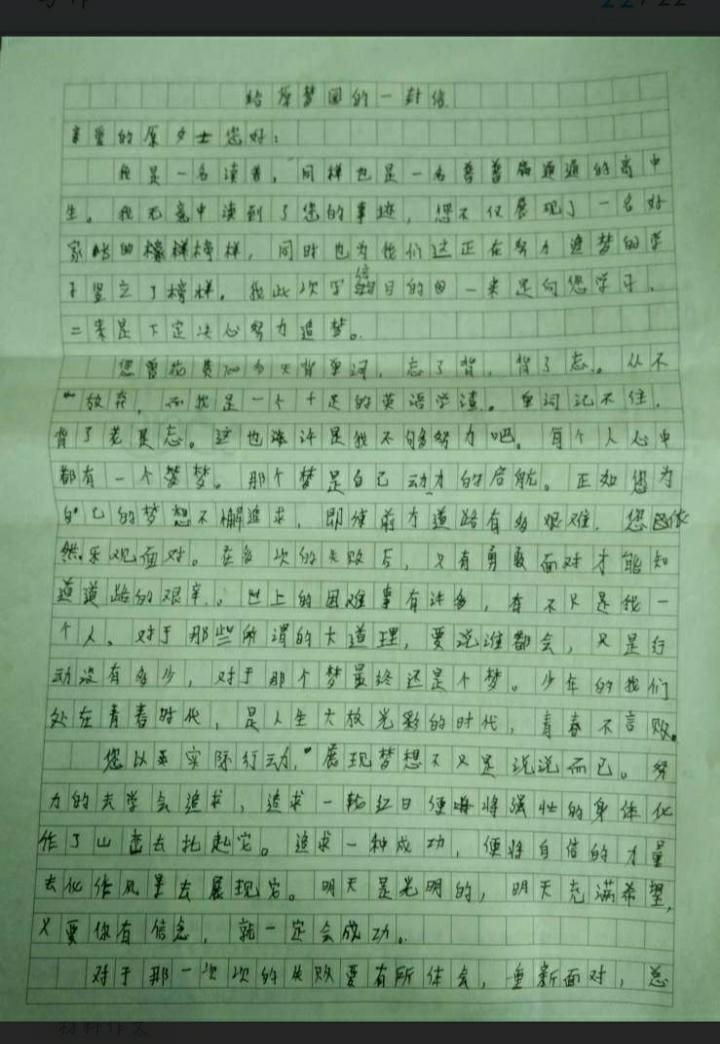 22/22
给原梦园的一封信
亲爱的原女士您好：
我是一名读者，同样也是一名普普通通的高中
生。我无意中读到了您的事迹，您不仅展现了一名好
家的榜样榜样，同时也为我们这正在努力追梦的学
子竖立了榜样。我此次写信目的一来是向您学习、
二来是下定决心努力追梦。
您曾按着每天背单词，忘了背，背了忘。从不
放弃，而我是一个十足的英语学渣。单词记不住，
背了老是忘。这也许是我不够努力吧，每个人心中
都有一个梦。那个梦是自己动力的启航。正如您为
自己的梦想不懈追求，即使前方道路有多艰难，您依
然乐观面对。在多次的失败后，只有勇敢面对才能知
道道路的艰辛。世上的困难事有许多，看不只是我一
个人。对于那些所谓的大道理，要说谁都会，只是行
动没有多少，对于那个梦最终还是个梦。少年的我们
处在青春时代，是人生大放光彩的时代，青春不言败。
您以实际行动，展现梦想不只是说说而已。努
力的去学会追求，追求一轮红日便将强壮的身体化
作了山峦去托起它。追求一种成功，便将自信的力量
去化作风景去展现它。明天是光明的，明天充满希望，
只要你有信念，就一定会成功。
对于那一次次的失败要有所体会，重新面对，总
材料作文